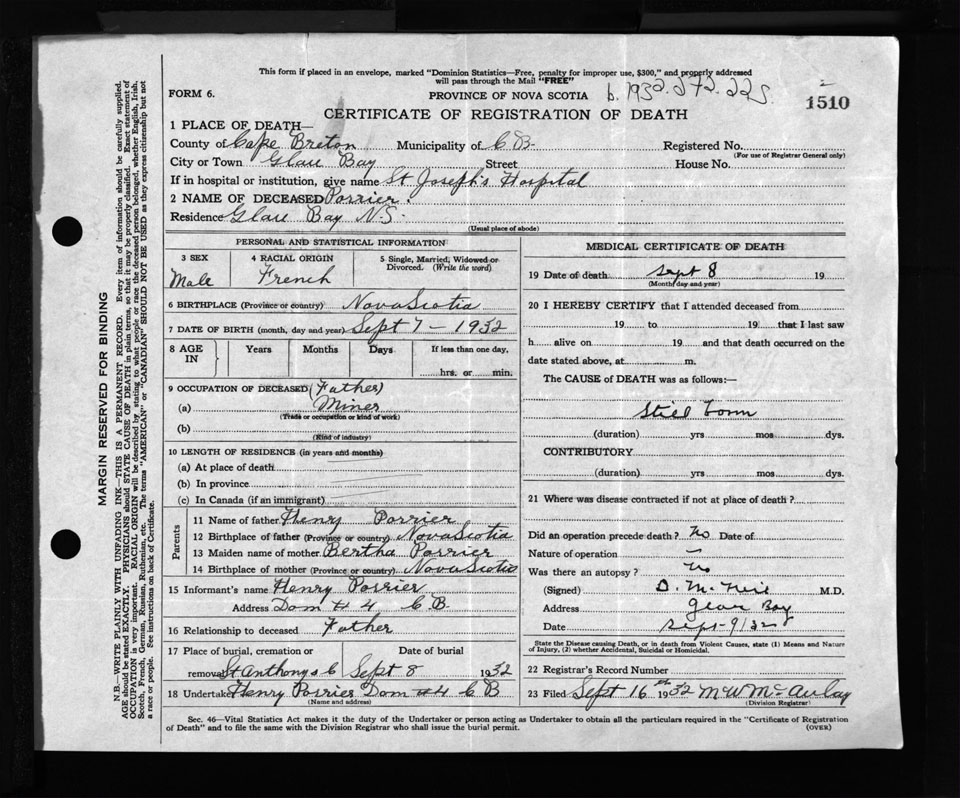 This form if placed in an envelope, marked "Dominion Statistics—Free, penalty for improper use, $300," and properly addressed
will pass through the Mail "FREE"
FORM 6.
PROVINCE OF NOVA SCOTIA
b. 1932-272-225
1510
CERTIFICATE OF REGISTRATION OF DEATH
1 PLACE OF DEATH—
County of Cape Breton Municipality of C B Registered No.
(For use of Registrar General only)
City or Town Glace Bay Street House No.
If in hospital or institution, give name St Joseph's Hospital
2 NAME OF DECEASED Porrier
Residence Glace Bay N.S.
(Usual place of abode)
PERSONAL AND STATISTICAL INFORMATION
3 SEX 4 RACIAL ORIGIN 5 Single, Married, Widowed or
Divorced. (Write the word)
Male French
6 BIRTHPLACE (Province or country) Nova Scotia
7 DATE OF BIRTH (month, day and year) Sept 7 - 1932
8 AGE IN Years Months Days If less than one day,
hrs. or min.
9 OCCUPATION OF DECEASED (Father)
(a) Miner
(Trade or occupation or kind of work)
(b)
(Kind of industry)
10 LENGTH OF RESIDENCE (in years and months)
(a) At place of death
(b) In province
(c) In Canada (if an immigrant)
Parents
11 Name of father Henry Porrier
12 Birthplace of father (Province or country) Nova Scotia
13 Maiden name of mother Bertha Porrier
14 Birthplace of mother (Province or country) Nova Scotia
15 Informant's name Henry Porrier
Address Dom # 4 C B.
16 Relationship to deceased Father
17 Place of burial, cremation or Date of burial
removal St Anthonys C Sept 8 1932
18 Undertaker Henry Porrier Dom #4 C B
(Name and address)
MEDICAL CERTIFICATE OF DEATH
19 Date of death Sept 8 19
(Month, day and year)
20 I HEREBY CERTIFY that I attended deceased from
19 to 19 that I last saw
h alive on 19 and that death occurred on the
date stated above, at m.
The CAUSE of DEATH was as follows:—
Still born
(duration) yrs mos dys.
CONTRIBUTORY
(duration) yrs mos dys.
21 Where was disease contracted if not at place of death?
Did an operation precede death? No Date of
Nature of operation —
Was there an autopsy? No
(Signed) D. McNeil M.D.
Address Glace Bay
Date Sept-9/32
State the Disease causing Death, or in death from Violent Causes, state (1) Means and Nature
of Injury, (2) whether Accidental, Suicidal or Homicidal.
22 Registrar's Record Number
23 Filed Sept 16th 1932 M W McAulay
(Division Registrar)
Sec. 46—Vital Statistics Act makes it the duty of the Undertaker or person acting as Undertaker to obtain all the particulars required in the "Certificate of Registration
of Death" and to file the same with the Division Registrar who shall issue the burial permit.
(OVER)
MARGIN RESERVED FOR BINDING
N.B.—WRITE PLAINLY WITH UNFADING INK—THIS IS A PERMANENT RECORD. Every item of information should be carefully supplied.
AGE should be stated EXACTLY. PHYSICIANS should STATE CAUSE OF DEATH in plain terms, so that it may be properly classified. Exact statement of
OCCUPATION is very important. RACIAL ORIGIN will be described by stating to what people or race the deceased person belonged, whether English, Irish,
Scotch, French, German, Russian, Ruthenian, etc. The terms "AMERICAN" or "CANADIAN" SHOULD NOT BE USED as they express citizenship but not
a race or people. See instructions on back of Certificate.